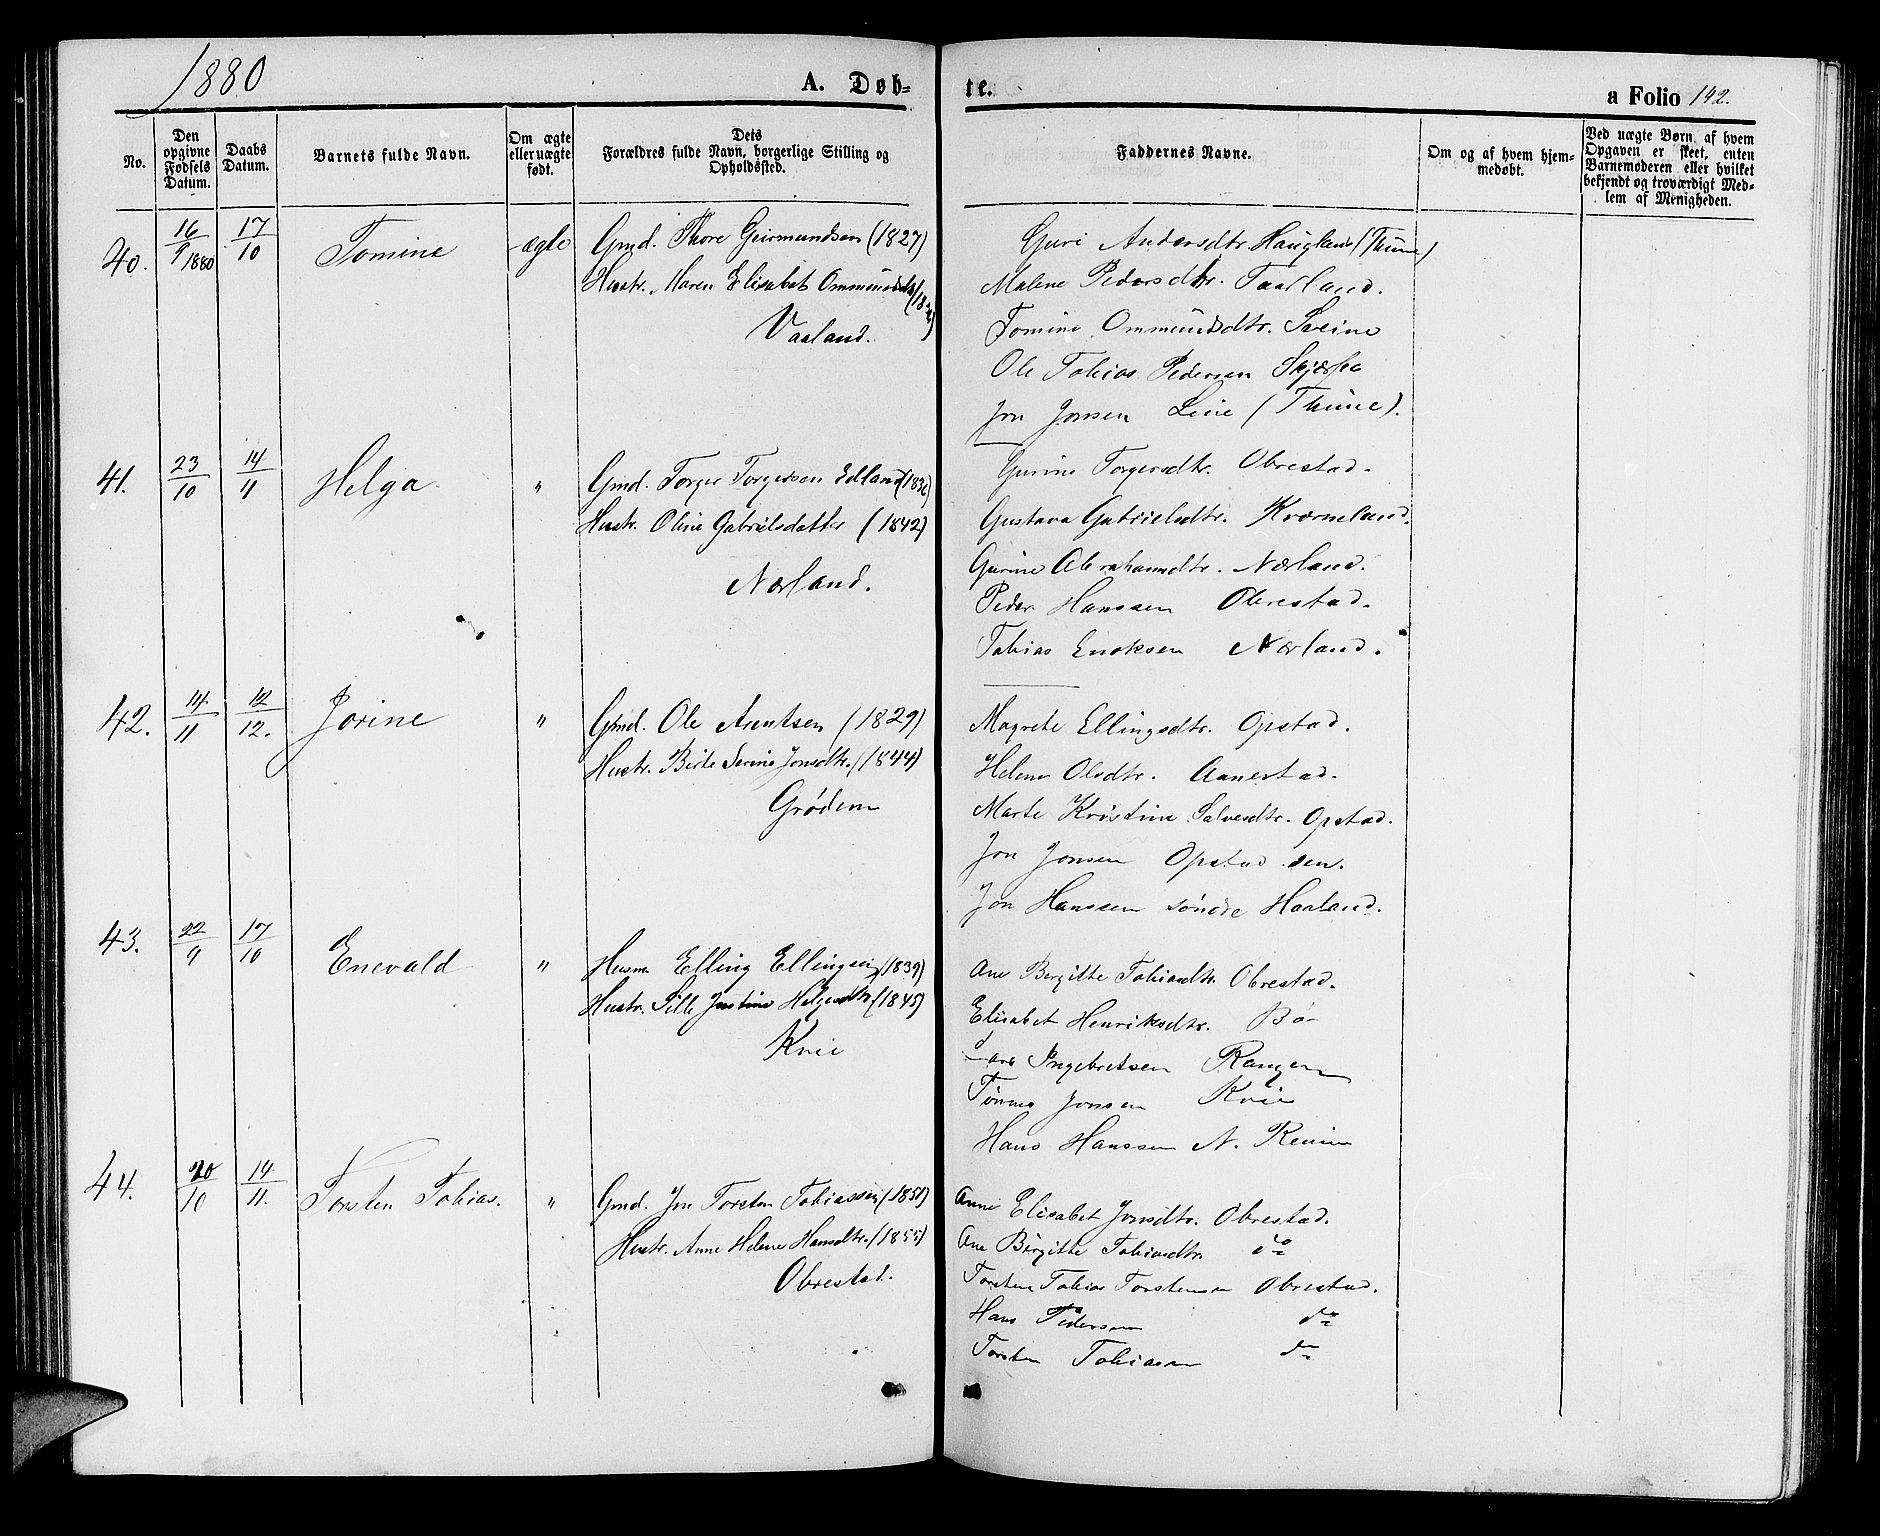 1880
A. Døb-
te.
a Folio 142.
No.
Den opgivne Fødsels Datum.
Daabs Datum.
Barnets fulde Navn.
Om ægte eller uægte født.
Dets Forældres fulde Navn, borgerlige Stilling og Opholdssted.
Faddernes Navne.
Om og af hvem hjem-
medøbt.
Ved uægte Børn, af hvem
Opgaven er skeet, enten
Barnemoderen eller hvilket
bekjendt og troværdigt Med-
lem af Menigheden.
40. 16/9 1880 17/10 Tomine ægte Gmd. Thore Geirmundsen (1827)
Hustr. Maren Elisabet Ommundsdtr
Vaaland.
Guri Andersdtr. Haugland (Thime)
Malene Pedersdtr. Taarland.
Tomine Ommundsdtr. Sveine
Ole Tobias Pedersen
Jon Jonsen Line (Thime).
41. 23/10 14/11 Helga " Gmd. Torger Torgersen Edland
Hustr. Oline Gabrielsdatter (1842)
Nærland.
Gurine Torgersdtr. Obrestad.
Gustava Gabrielsdtr. Kverneland.
Gurine Abrahamsdtr. Nærland.
Peder Hanssen Obrestad.
Tobias Enoksen Nærland.
42. 14/11 12/12. Jorine " Gmd. Ole Arentsen (1829)
Hustr. Birte Serine Jonsdtr. (1844)
Grødem
Magrete Ellingsdtr. Opstad.
Helene Olsdtr. Aanestad.
Marte Kristine Salvesdtr. Opstad.
Jon Jonsen Opstad sen.
Jon Hanssen søndre Haaland.
43. 22/9 17/10 Enevald " Husm. Elling Ellingsen (1839)
Hustr. Sille Justine Helgesdtr (1845)
Kvie
Ane Bergitte Tobiasdtr. Obrestad.
Elisabet Henriksdtr. Bø
Lars Ingebretsen Rangen
Tønnes Jonsen Kvie
Hans Hanssen N. Reime
44. 20/10 14/11. Torsten Tobias. " Gmd. Jon Torsten Tobiassen (1851)
Hustr. Anne Helene Hansdtr. (1855)
Obrestad.
Anne Elisabet Jonsdtr. Obrestad.
Ane Birgitte Tobiasdtr. do
Torsten Tobias Torstensen Obrestad.
Hans Pedersen do
Torsten Tobiasen do